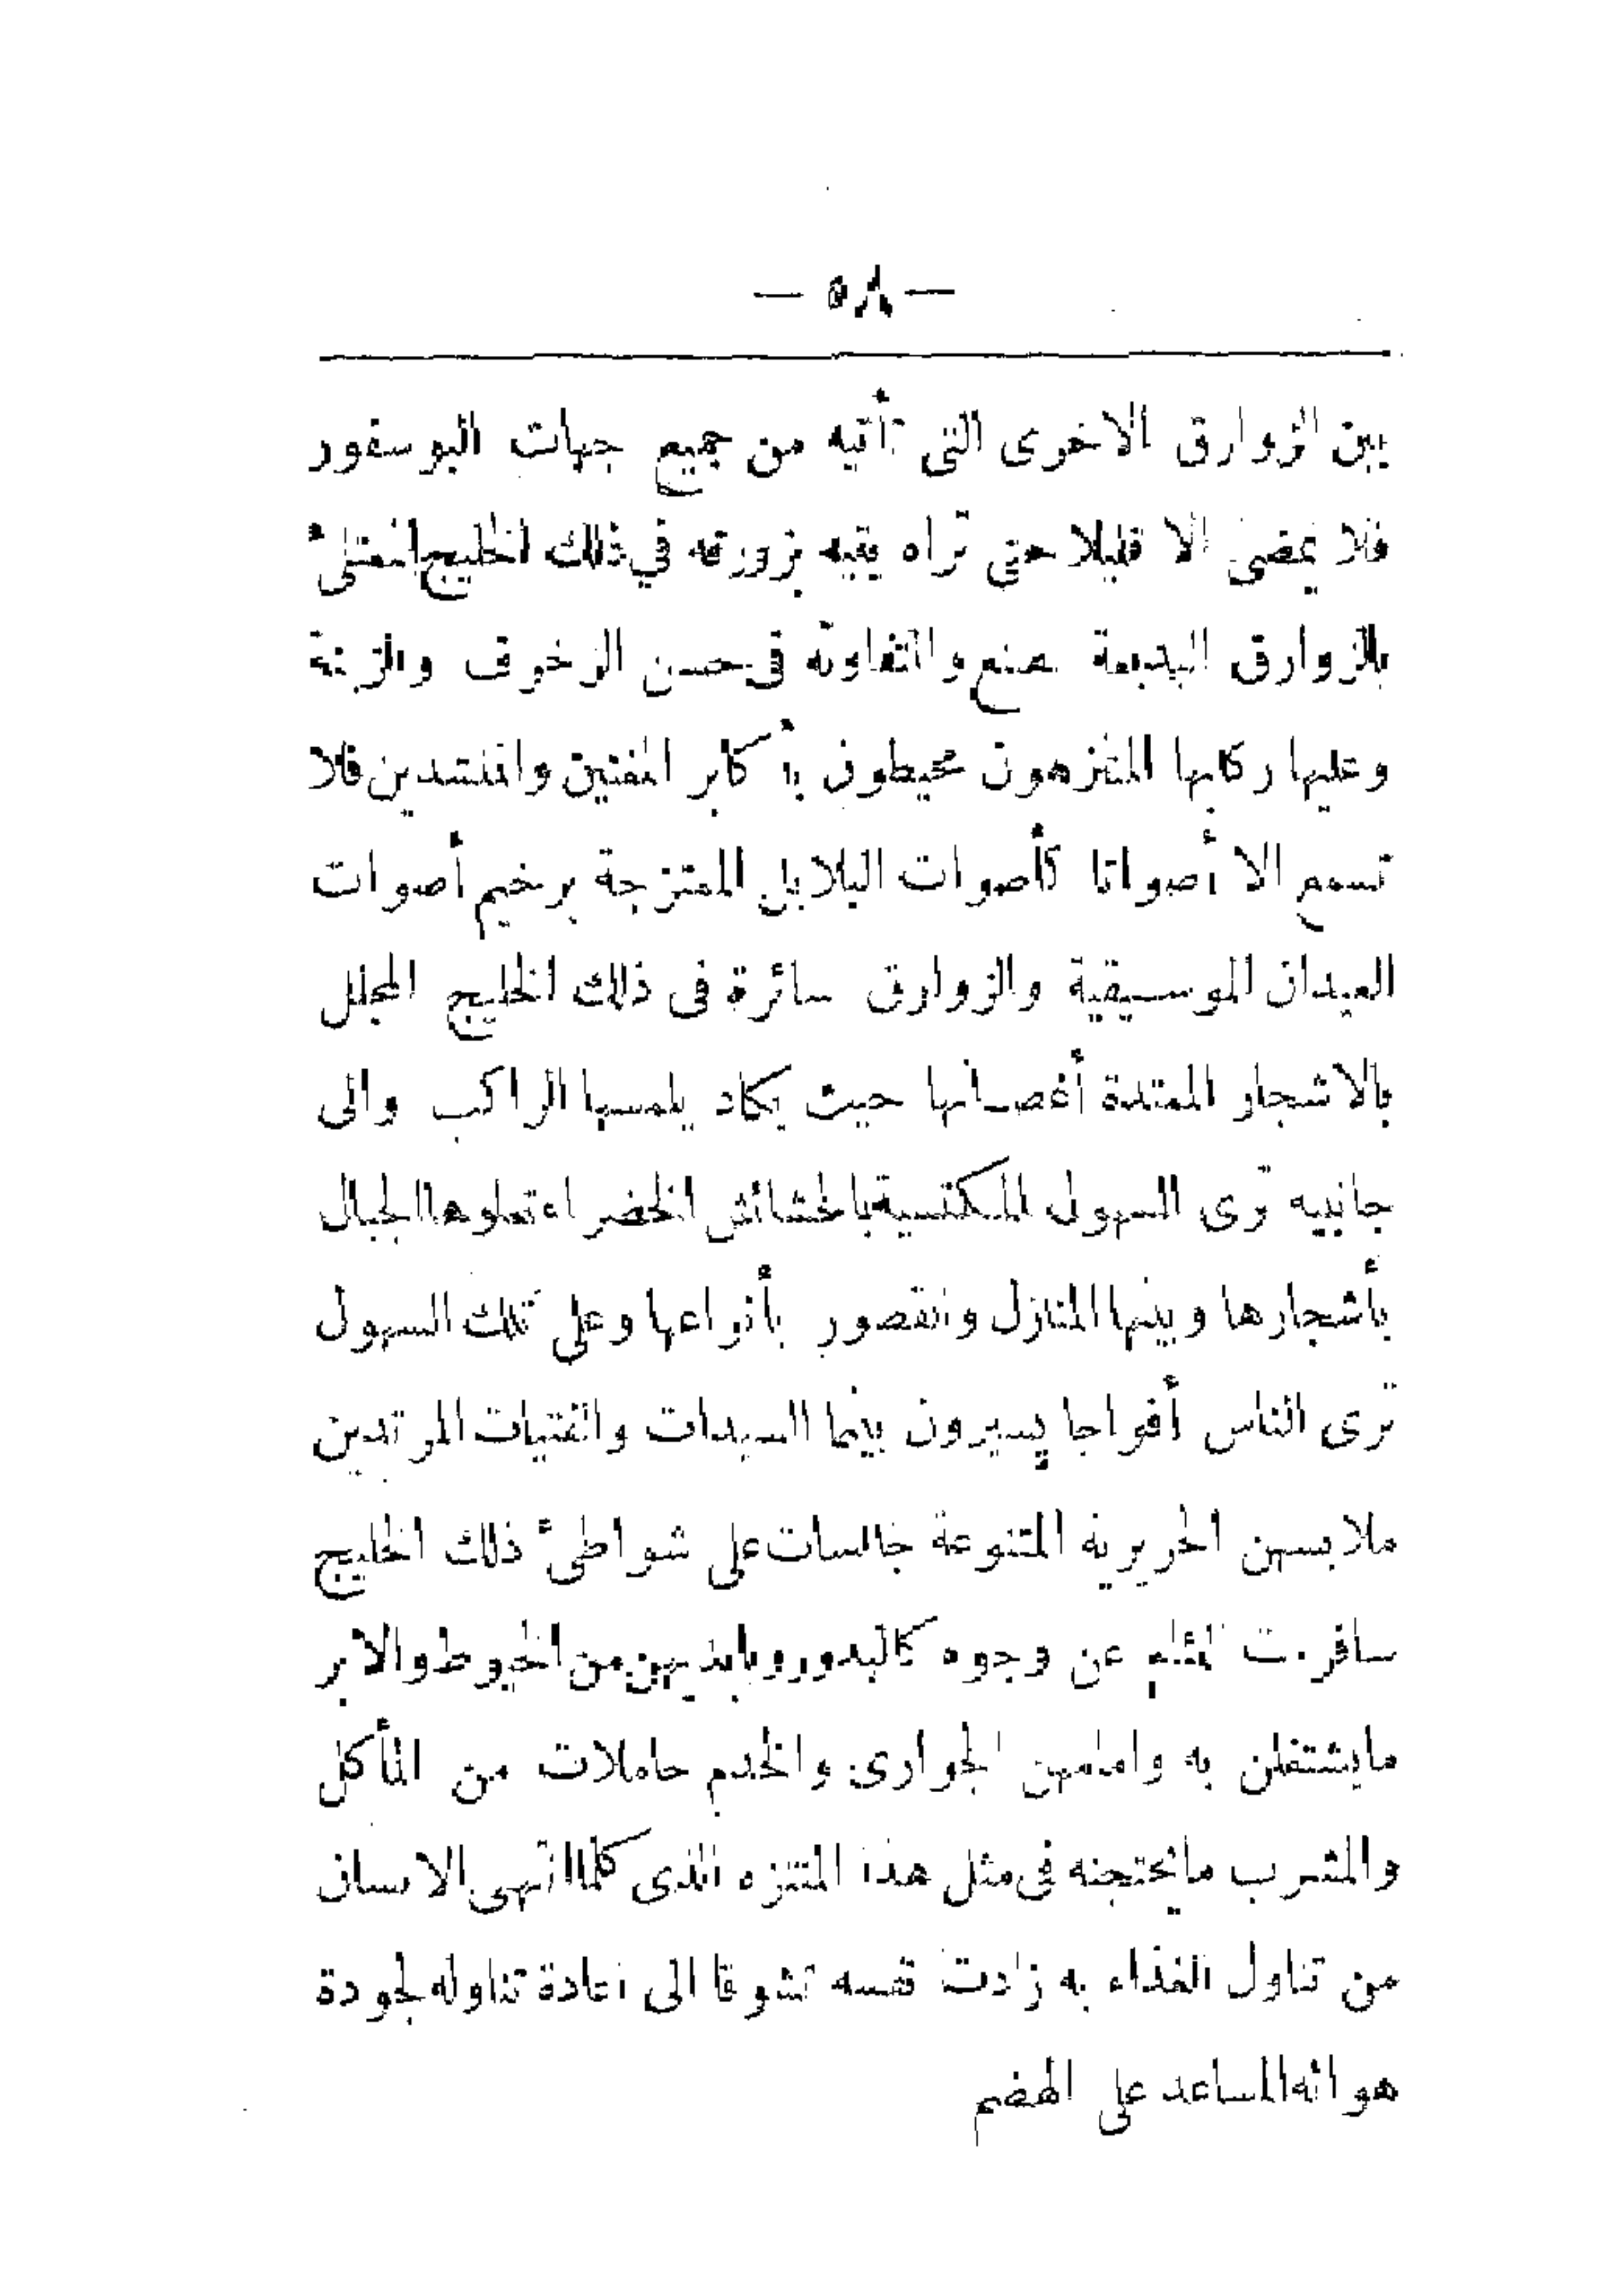 — ٥٨ —
بين الزوارق الاخرى التى تأتيه من جميع جهات البوسفور
فلا يمضى الا قليلا حتى تراه يتيه بزورقه في ذلك الخليج الممتلئ
بالزوارق البديعة الصنع والمتفاوتة فى حسن الزخرف والزينة
وعليها ركابها المتنزهون محيطون بأكابر المغنين والمنشدين فلا
تسمع الا أصواتا كأصوات البلابل الممتزجة برخيم أصوات
العيدان الموسيقية والزوارق سائرة فى ذلك الخليج المجلل
بالاشجار الممتدة أغصانها حيث يكاد يلمسها الراكب والى
جانبيه ترى السهول المكتسية بالحشائش الخضراء تعلوها الجبال
بأشجارها وبينها المنازل والقصور بأنواعها وعلى تلك السهول
ترى الناس أفواجا يسيرون بينما السيدات والفتيات المرتدين
ملابسهن الحريرية المتنوعة جالسات على شواطئ ذلك الخليج
سافرت اللثام عن وجوه كالبدور وبايديهن من الخيوط والابر
مايشتغلن به وامامهن الجوارى والخدم حاملات من المأكل
والمشرب مايحتجنه فى مثل هذا المتنزه الذى كلما انتهى الانسان
من تناول الغذاء به زادت نفسه تشوقا الى اعادة تناوله لجودة
هوائه المساعد على الهضم